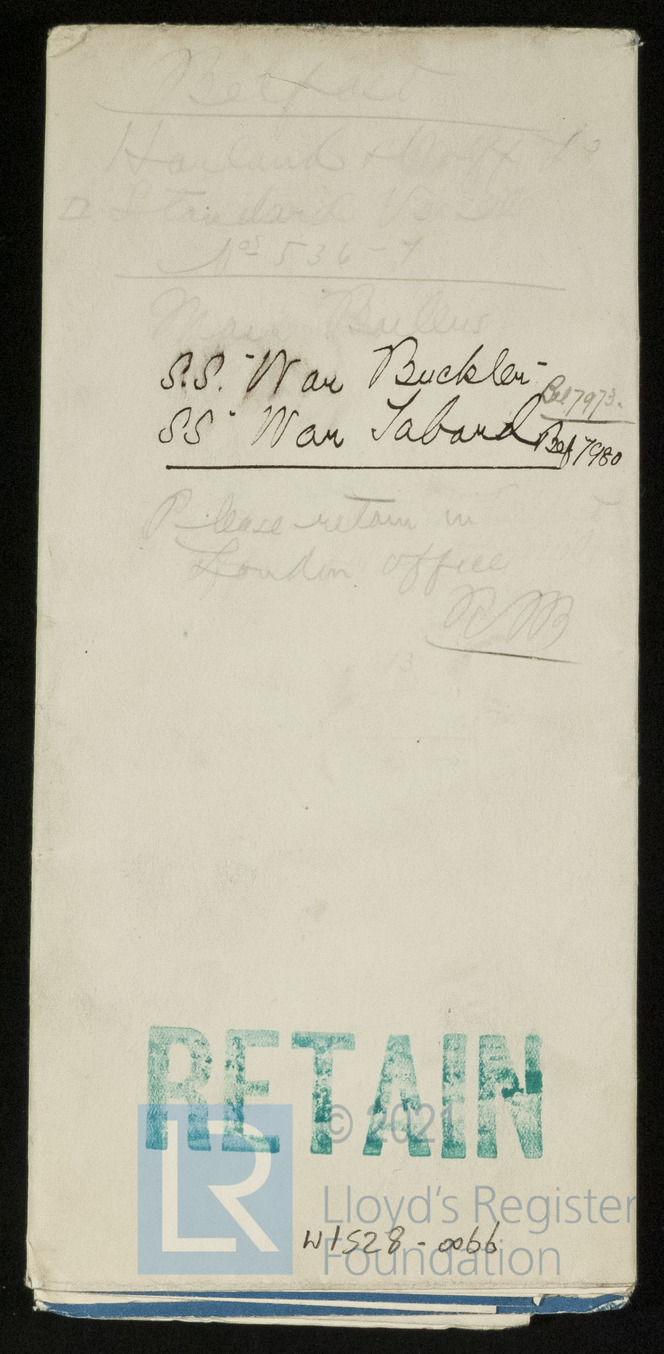 Belfast
Harland & Wolff Ld
D Standard
Nos 536-7
Main Boilers
S.S. "War Buckler" Bel 7973.
SS "War Tabard" Bef 7980
Please retain in
London office
RETAIN
© 2021
LR
Lloyd's Register
Foundation
W1528-0066